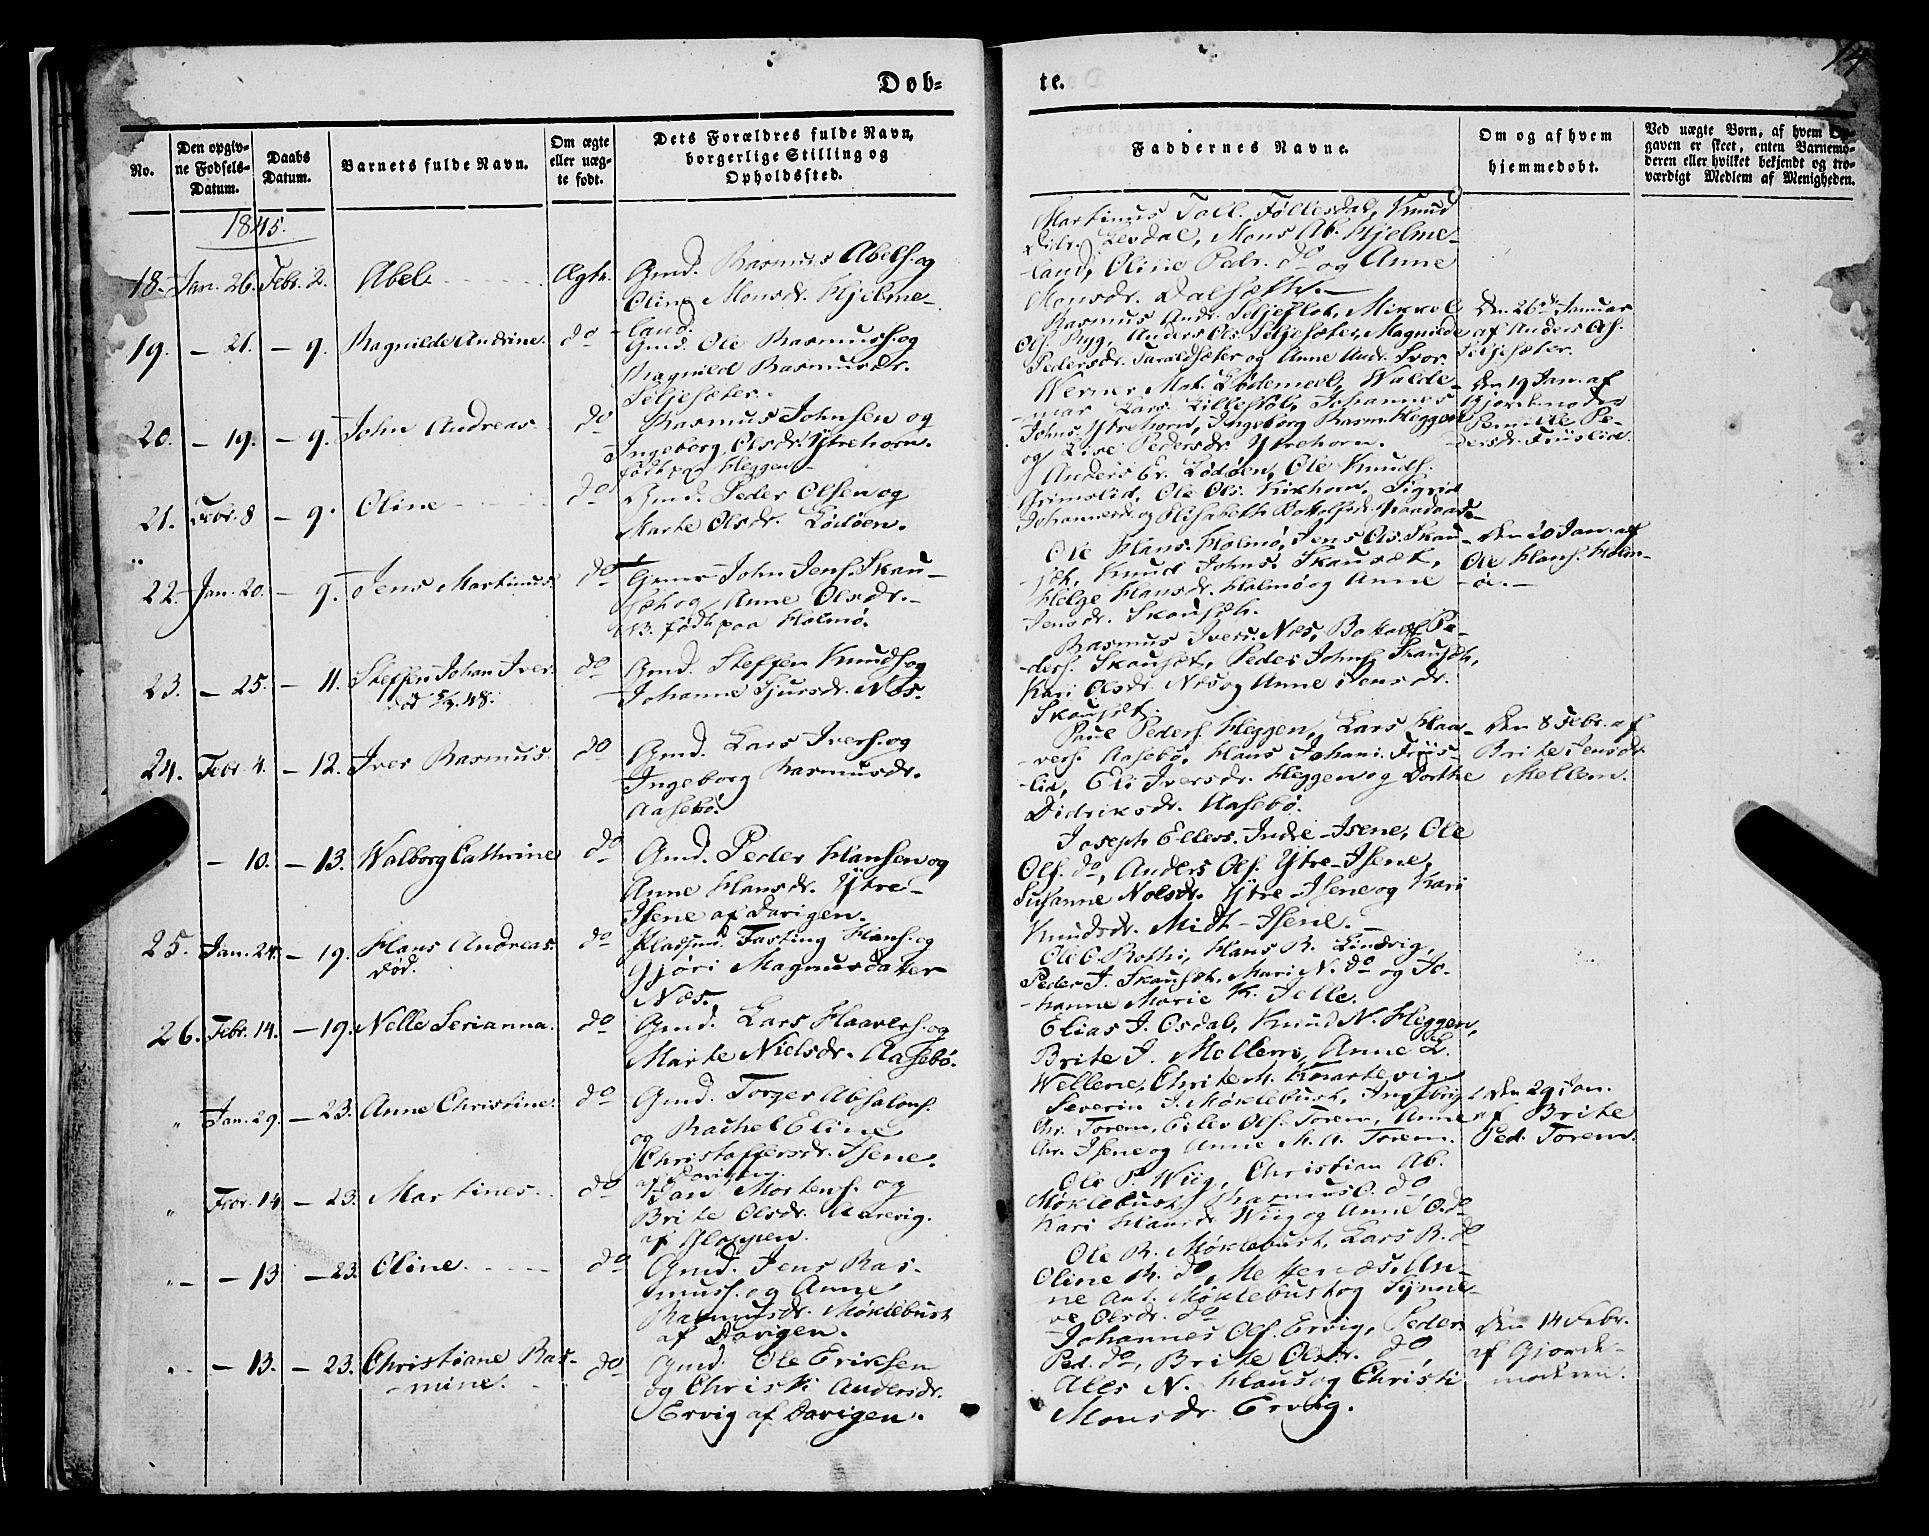 Døb-
te.
14
No.
Den opgiv-
ne Fødsels-
Datum.
Daabs
Datum.
Barnets fulde Navn.
Om ægte
eller uæg-
te født.
Dets Forældres fulde Navn,
borgerlige Stilling og
Opholdssted.
Faddernes Navne.
Om og af hvem
hjemmedøbt.
Ved uægte Børn, af hvem Op-
gaven er skeet, enten Barnemo-
deren eller hvilket bekjendt og tro-
værdigt Medlem af Menigheden.
1845.
18. Jan. 26. Febr. 2. Abel Ægte.
Gmd. Rasmus Abels. og
Oline Monsdr. Hjelme-
land.
Martinus Toll. Föllesdal, Knud
Didr. Levdal, Mons Ab. Hjelme-
land, Oline Pedr. do og Anne
Monsdr. Dalsæth.
19. - 21. - 9. Ragnilde Andrine. do
Gmd. Ole Rasmuss. og
Magnild Rasmusdr.
Seljesæter.
Rasmus Andr. Seljeflot, Mikkel
Ols. Ryg, Anders Ols. Seljesæter, Magnilde
Pedersdr. Taraldsæter og Anne Andr. Svor.
Den 26de Januar
af Anders Ols.
Seljesæter.
20. - 19. - 9. John Andreas. do
Rasmus Johnsen og
Ingeborg Olsdr. Ytrehorn.
født paa Heggen
Werner Mat. Lødemel, Walde-
mar Lars. Lilleskol, Johannes
Johns. Ytrehorn, Ingeborg Rasm. Heggen
og Lise Pedersdr. Ytrehorn.
Den 19 Jan. af
Gjordemoder
Pernille Pe-
dersdr. Friislid.
21. Febr. 8 - 9. Oline do
Gmd. Peder Olsen og
Marte Olsdr. Lødøen.
Anders Er. Lødøen, Ole Knuds.
Grimslid, Ole Ols. Kirkhorn, Sigrid
Johannesdr. og Elisabeth Bottolfsdr.
22. Jan. 20. - 9. Jens Martinus. do
John Jens. Skau-
sæt og Anne Olsdr.
NB. født paa Holmø.
Ole Hans. Holmø, Jens Ols. Skau-
sæt, Knud Johns. Skausæt,
Helge Hansdr. Holmø og Anne
Jensdr. Skausæt.
Den 20 Jan. af
Ole Hans. Holm-
ø.
23. - 25. - 11. Steffen Johan Iver. do
død 5/3.48.
Gmd. Steffen Knuds. og
Johanne Sjursdr. Nos.
Rasmus Ivers. Nos, Bottolf Pe-
ders. Skausæt, Peder Johns. Skausæt,
Kari Olsdr. Nos og Anne Jensdr.
Skausæt.
24. Febr. 4. - 12. Iver Rasmus. do
Gmd. Lars Ivers. og
Ingeborg Rasmusdr.
Aasebø.
Paul Peders. Heggen, Lars Haa-
vers. Aasebø, Hans Johani. Friis-
lid, Eli Iversdr. Heggen og Dorthe
Didriksdr. Aasebø.
Den 8 Febr. af
Brite Jensdr.
Mellem.
" - 10. - 13. Walborg Cathrine do
Gmd. Peder Hansen og
Anne Hansdr. Ytre-
Isene af Davigen.
Joseph Ellers. Indre-Isene, Ole
Ols. do, Anders Ols. Ytre-Isene,
Susanne Nelsdr. Ytre-Isene og Kari
Knudsdr. Midt-Isene.
25. Jan. 24. - 19. Hans Andreas. do
død.
Pladsmd. Fasting Hans. og
Gjøri Magnusdatter
Nos.
Ole O. Rothi, Hans R. Lindvig,
Peder J. Skausæt, Mari N. do og Jo-
hanne Marie K. Telle.
26. Febr. 14. - 19. Nelle Serianna. do
Gmd. Lars Haavers. og
Marte Nielsdr. Aasebø.
Elias J. Osdal, Knud N. Heggen,
Brite J. Mellem, Anne L.
Wellene, Chrite M. Knartevig.
" Jan. 29. - 23. Anne Christine. do
Gmd. Torger Absalons.
og Rachel Eline
Christoffersdr. Isene.
af Davigen.
Severin J. Møklebust, Ingebrigt
Chr. Torem, Eilev Ols. Torem, Anne
Chr. Isene og Anne M. A. Torem.
Den 29 Jan.
af Brite
Ped. Torem.
" Febr. 14 - 23. Martines. do
Jan Mortens. og
Brite Olsdr. Aarevig.
af Gloppen.
Ole P. Wiig, Christian Ab.
Møklebust, Rasmus O. do
Kari Hansdr. Wiig og Anne O. do
" - 13 - 23. Oline. do
Gmd. Jens Ras-
muss. og Anne
Rasmusdr. Møklebust
af Davigen.
Ole R. Møklebust, Lars R. do
Oline R. do, An-
ne Ant. Møklebust og Synne-
ve Olsdr. do
" - 13. - 23. Christiane Ras- do
mine.
Gmd. Ole Eriksen
og Christi Andersdr.
Ervig af Davigen.
Johannes Ols. Ervig, Peder
Ped. do, Brite Olsdr. do,
Ales N. Haus og Christi
Monsdr. Ervig.
Den 14 Febr.
af Gjorde-
moderen.